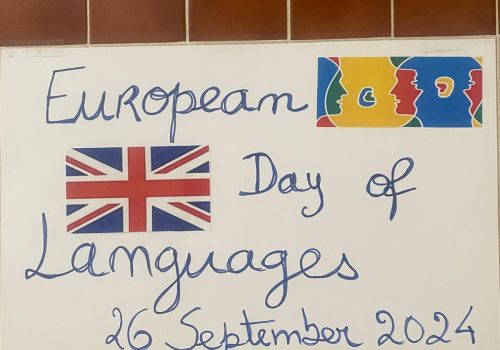 European
Day of
Languages
26 September 2024